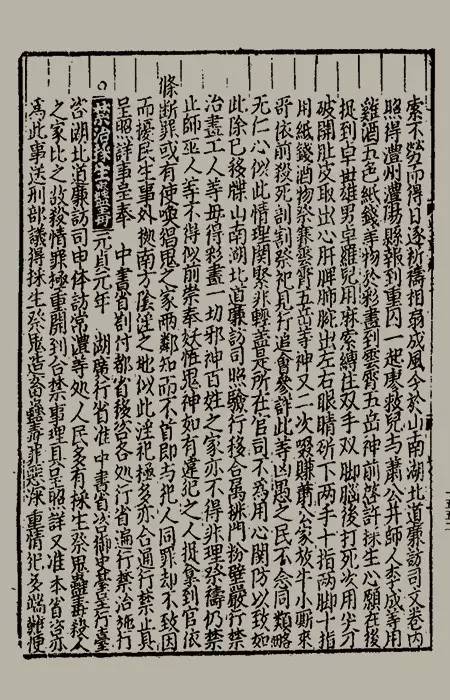 索不勞而得日逐祈禱相扇成風今於山南湖北道廉訪司文卷内
照得澧州澧陽縣報到重囚一起廖救兒与蕭公并師人李成等用
雞酒五色紙錢等物於彩畫到雲霄五岳神前啓許採生心願在後
捉到卓世雄男卓罪兒用麻索縛住双手双脚腦後打死次用尖刀
破開肚皮取出心肝脾肺臓出左右眼睛斫下兩手十指兩脚十指
用紙錢酒物祭賽雲霄五岳等神又二次賺蕭公家放牛小厮來
哥依前殺死割祭祀見行追會參詳此等凶愚之民不念同類略
无仁心似此情理関緊非輕盖是所在官司不爲用心関防以致如
此除已移牒山南湖北道廉訪司照驗行移合属排門粉壁嚴行禁
治畫工人等毋得彩畫一切邪神百姓之家亦不得非理祭禱仍禁
止師巫人等不得似前崇奉妖恠鬼神如有違犯之人捉拿到官依
條断罪或有使喚猖鬼之家兩鄰知而不首即与犯人同罪却不致因
而擾民生事外據南方淫之地似此淫祀極多亦合通行禁止具
呈照詳事呈奉 中書省劄付都省移咨各処行省遍行禁治施行
禁治採生蠱毒 元貞元年 湖廣行省准 中書省咨御史臺呈行臺
咨湖北道廉訪司申体訪常澧等処人民多有採生祭鬼蠱毒殺人
之家比之故殺情罪極重開到合禁事理具呈照詳又准本省咨亦
爲此事送刑部議得採生祭鬼造畜蠱毒罪惡深重情犯多端難便